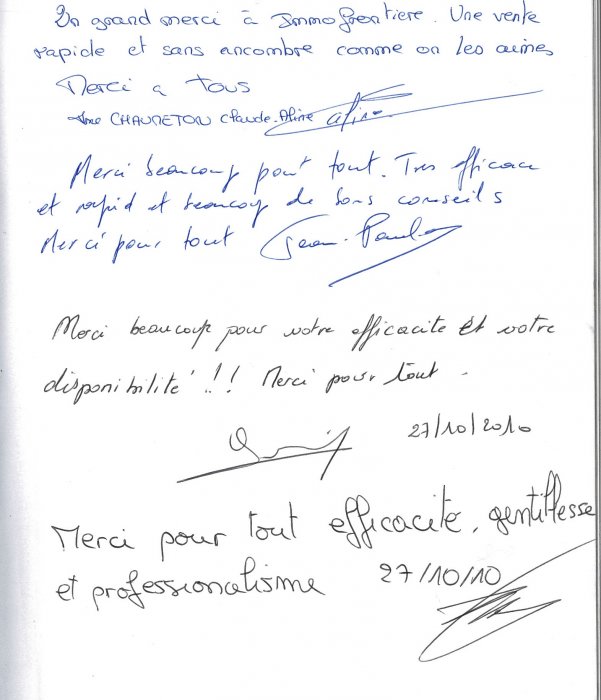 Un grand merci à Immo frontiere. Une vente
rapide et sans encombre comme on les aimes
Merci a tous
Mme CHAUMETON Claude-Aline
Merci beaucoup pour tout. Tres efficace
et rapid et beaucoup de bons conseils
Merci pour tout Jean-Paul
Merci beaucoup pour votre efficacite et votre
disponibilité !!! Merci pour tout.
27/10/2010
Merci pour tout efficacité, gentillesse
et professionalisme 27/10/10